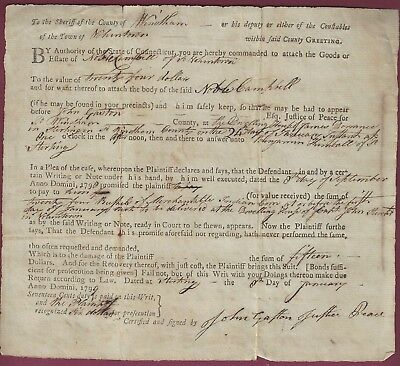 To the Sheriff of the County of Windham or his deputy or either of the Constables
of the Town of Voluntown within said County GREETING.
BY Authority of the State of Connecticut, you are hereby commanded to attach the Goods or
Estate of Noble Campbell of Voluntown
To the value of twenty four dollars
and for want thereof to attach the body of the said Noble Campbell
(if he may be found in your precincts) and h im safely keep, so that he may be had to appear
before John Gaston Esq. Justice of Peace for
Windham County, at the Dwelling House of James Dorrance
in Sterling in Windham County on the day of February at
One o'Clock in the noon, then and there to answer unto Benjamin Kimball of
Sterling
In a Plea of the case, whereupon the Plaintiff declares and says, that the Defendant, in and by a cer-
tain Writing or Note under his hand, by h im well executed, dated the day of September
Anno Domini, 179 promised the plaintiff to
pay to (for value received) the sum of
twenty four Bushels of Merchantable Indian Corn at or before the
to be delivered at the Dwelling House of John
in Voluntown
as by the said Writing or Note, ready in Court to be shewn, appears. Now the Plaintiff further
says, That the Defendant h is promise aforesaid not regarding, hath never performed the same,
tho often requested and demanded,
Which is to the damage of the Plaintiff the sum of fifteen
Dollars. And for the Recovery thereof, with just cost, the Plaintiff brings this Suit. [Bonds suffi-
cient for prosecution being given] Fail not, but of this Writ with your Doings thereon make due
Return according to Law. Dated at Sterling the Day of January
Anno Domini, 179
Seventeen Cents duty is paid on this Writ,
and the Plaintiff
recognized six dollars for prosecution
Certified and signed by John Gaston Justice Peace